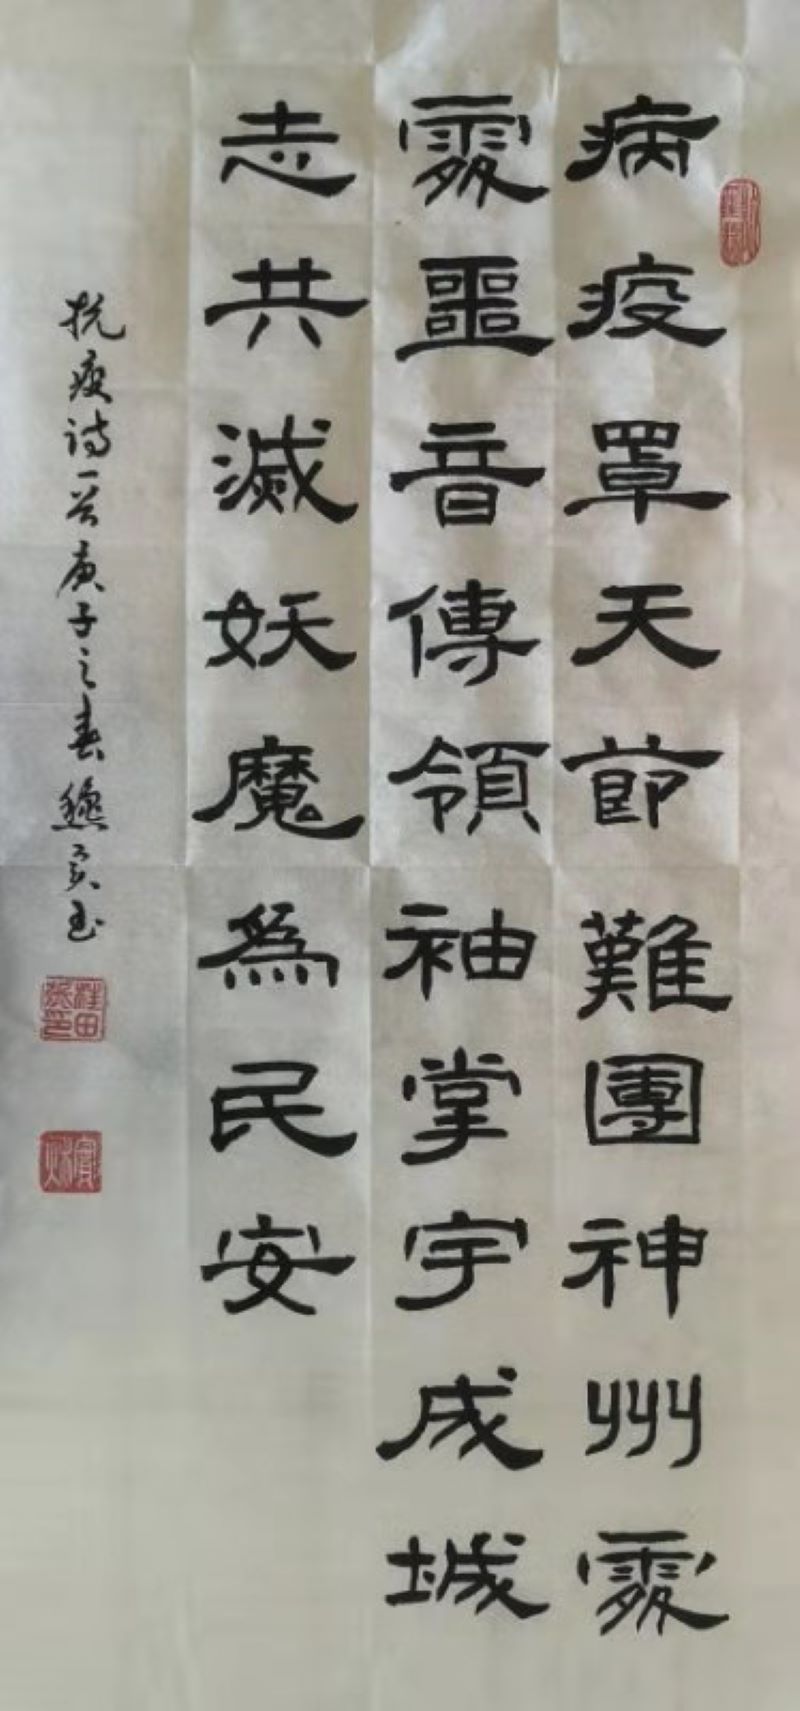 病疫罩天節難團神州處
處噩音傳領袖掌宇成城
志共滅妖魔為民安
抗疫诗一首庚子之春书